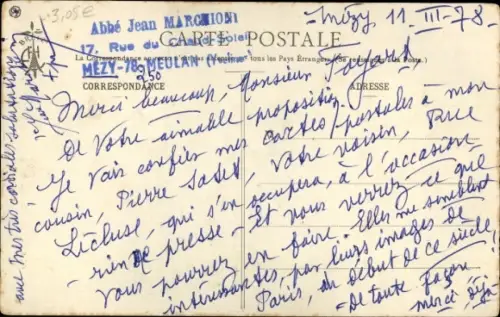 3,05€
Abbé Jean MARCHIONI
17, Rue du Grand Soleil
MÉZY-78-MEULAN
Mézy 11-III-78
CARTE POSTALE
CORRESPONDANCE
ADRESSE
9,50
Merci beaucoup, Monsieur Fayard,
De votre aimable proposition
Je vais confier mes cartes-postales à mon
cousin, Pierre Satet, votre voisin, Rue
Lécluse, qui s'en occupera, à l'occasion
- rien ne presse - et vous verrez ce que
vous pourrez en faire. Elles me semblent
intéressantes, par leurs images de
Paris, du début de ce siècle!
- De toute façon
merci déjà
avec mes très cordiales salutations